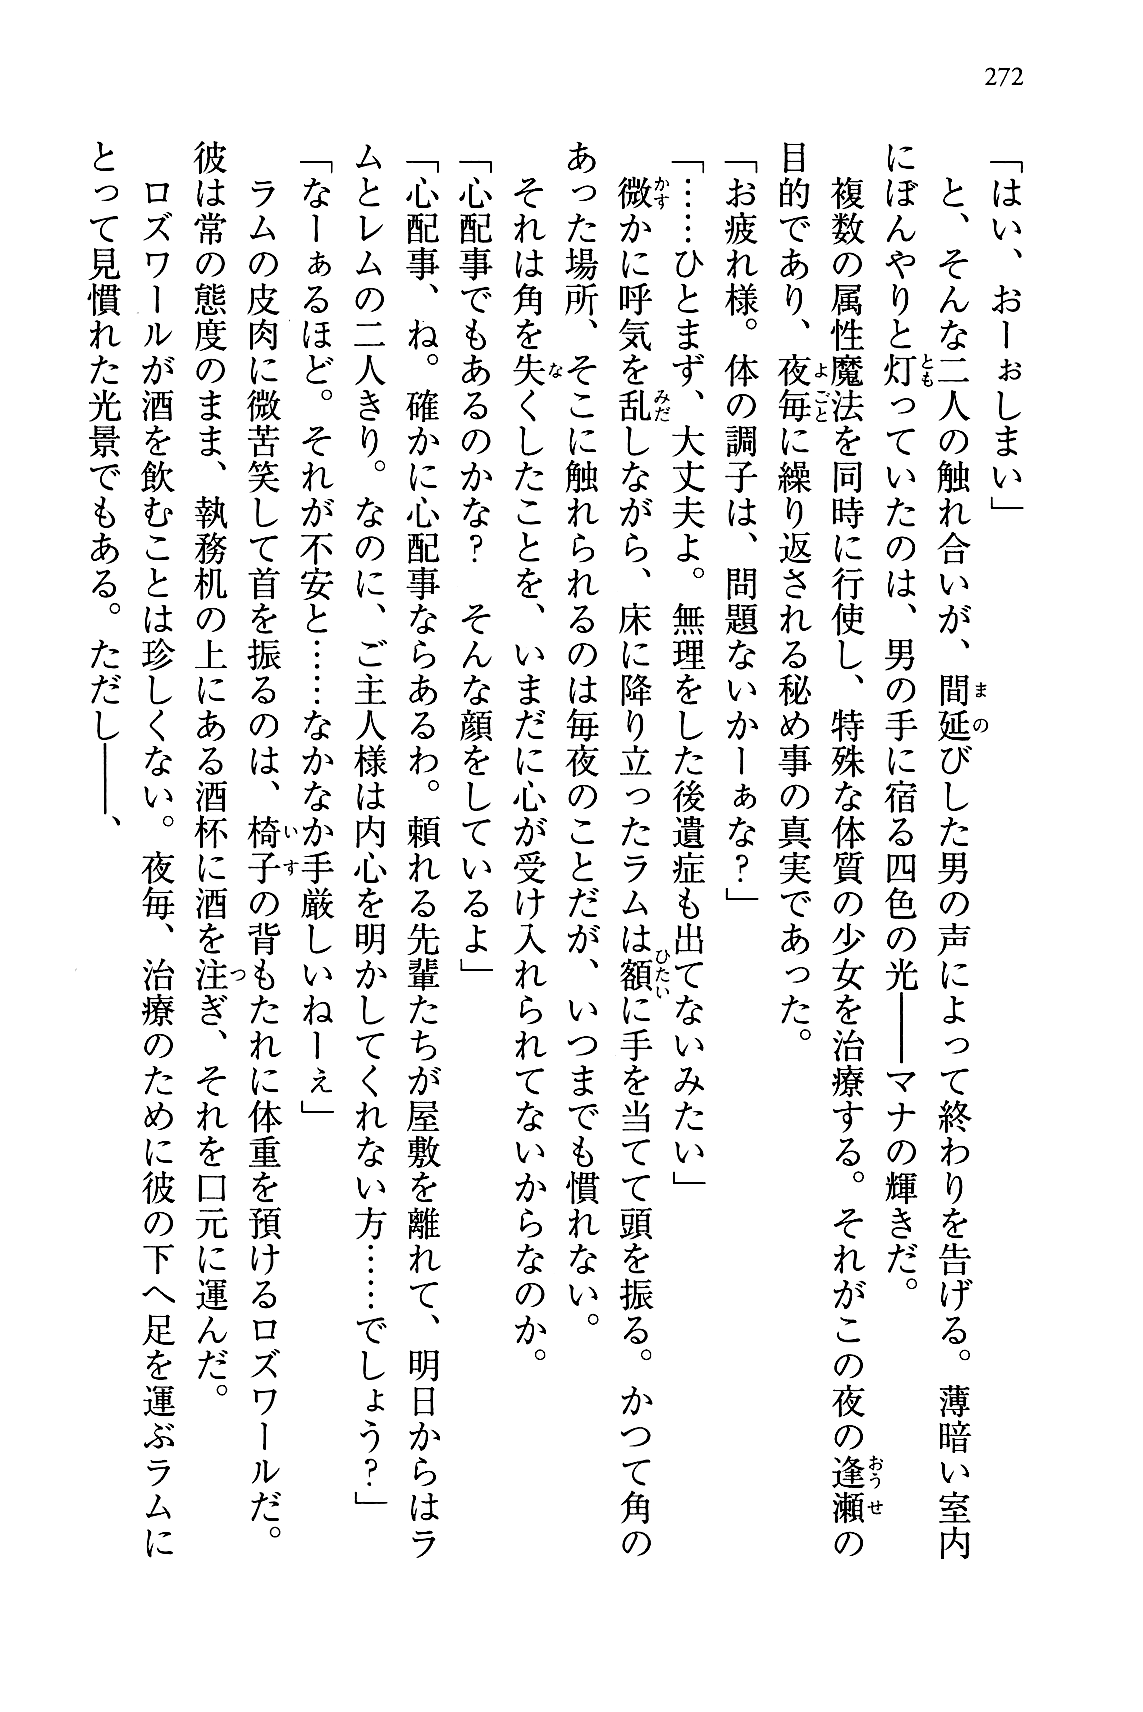 272
「はい、おーぉしまい」
　と、そんな二人の触れ合いが、間延びした男の声によって終わりを告げる。薄暗い室内
にぼんやりと灯っていたのは、男の手に宿る四色の光――マナの輝きだ。
　複数の属性魔法を同時に行使し、特殊な体質の少女を治療する。それがこの夜の逢瀬の
目的であり、夜毎に繰り返される秘め事の真実であった。
「お疲れ様。体の調子は、問題ないかーぁな？」
「……ひとまず、大丈夫よ。無理をした後遺症も出てないみたい」
　微かに呼気を乱しながら、床に降り立ったラムは額に手を当てて頭を振る。かつて角の
あった場所、そこに触れられるのは毎夜のことだが、いつまでも慣れない。
　それは角を失くしたことを、いまだに心が受け入れられてないからなのか。
「心配事でもあるのかな？　そんな顔をしているよ」
「心配事、ね。確かに心配事ならあるわ。頼れる先輩たちが屋敷を離れて、明日からはラ
ムとレムの二人きり。なのに、ご主人様は内心を明かしてくれない方……でしょう？」
「なーぁるほど。それが不安と……なかなか手厳しいねーぇ」
　ラムの皮肉に微苦笑して首を振るのは、椅子の背もたれに体重を預けるロズワールだ。
彼は常の態度のまま、執務机の上にある酒杯に酒を注ぎ、それを口元に運んだ。
　ロズワールが酒を飲むことは珍しくない。夜毎、治療のために彼の下へ足を運ぶラムに
とって見慣れた光景でもある。ただし――、